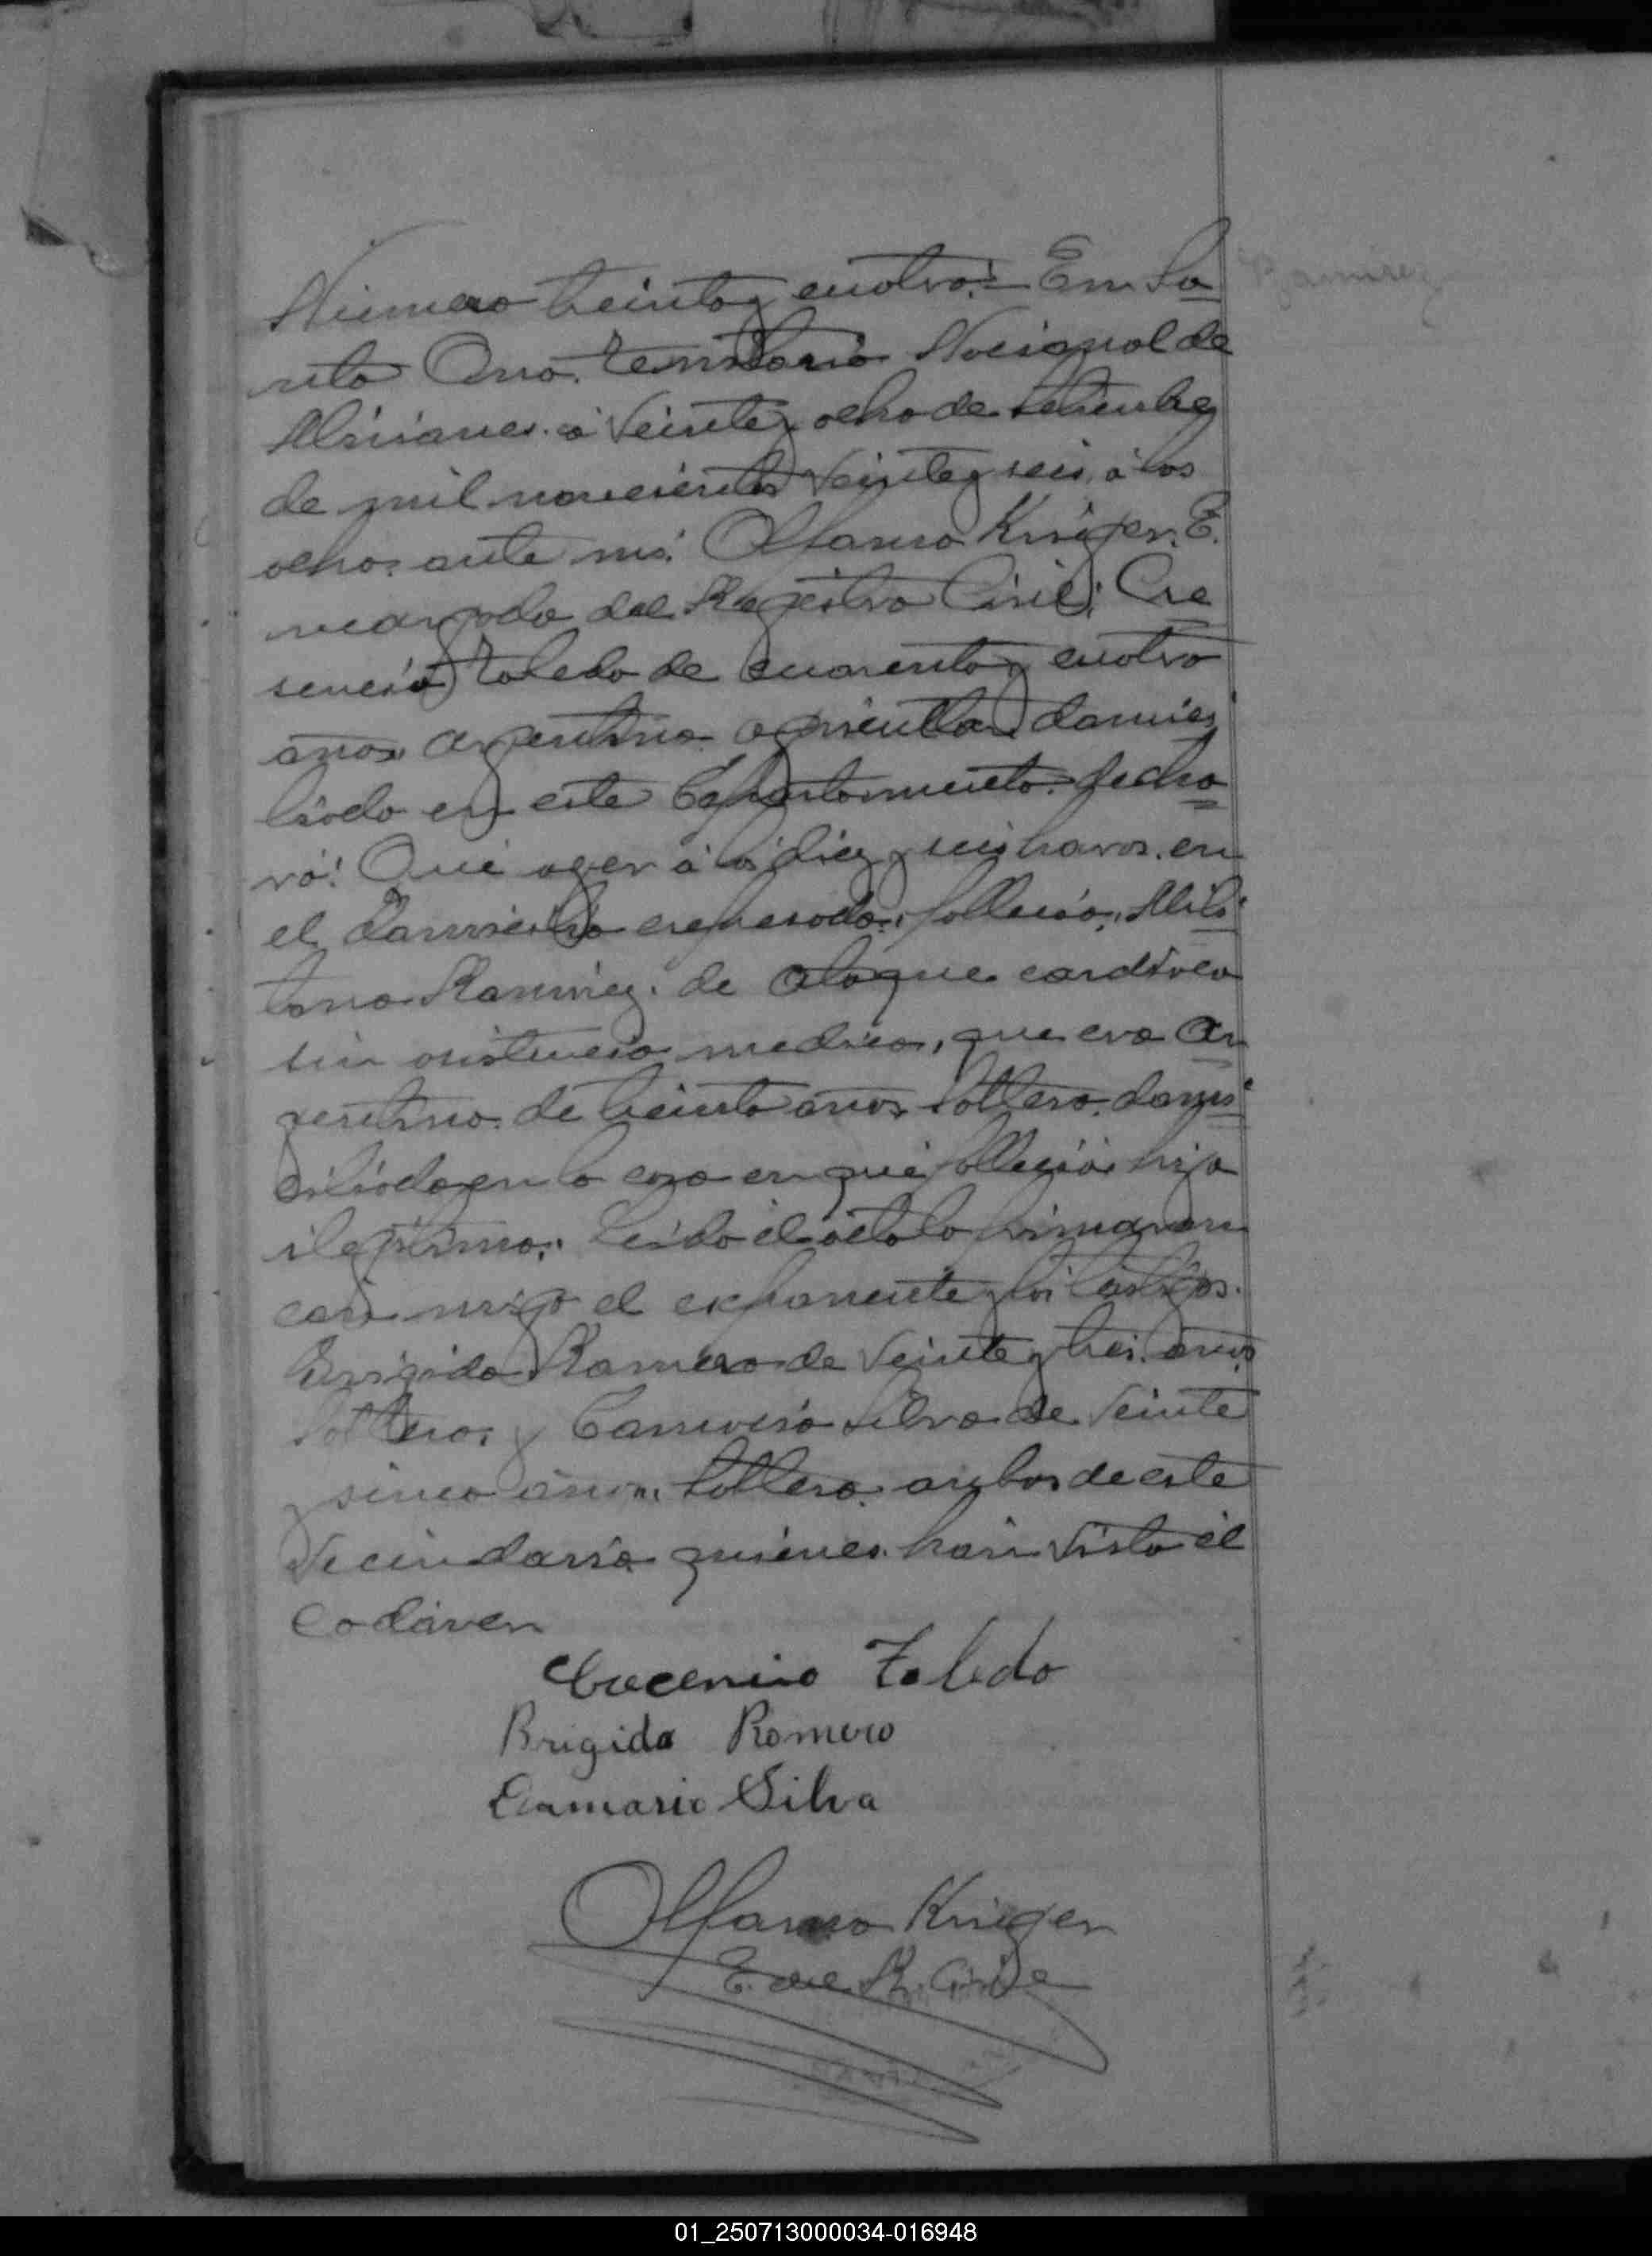 Número treinta y cuatro:= En Sa
nta Ana. territorio Nacional de
Misiones. a Veinte y ocho de Setiembre
de mil novecientos Veinte y seis, á las
ocho. ante mi: Alfonso Kriger. E.
ncargado del Registro Civil; Cre
sencio Toledo de cuarenta y cuatro
anos. argentino. agricultor. domici
liado en este Departamento. decla
ró: Que ayer á las diez y seis horas. en
el domicilio expresado, fallecio,
Ramirez. de ataque cardiaco
sin asistencia medica, que era Ar
gentino. de treinta anos. soltero. domi
ciliado en la casa en que fallecio; hijo
ilegitimo. Leido el acta lo firmaron
con migo el exponente y los testigos.
Brigido Romero de Veinte y tres. anos
Soltero. y Silva de Veinte
y sinco anos. Soltero. ambos de este
Vecindario quienes. han Visto el
Cadáver
Crecencio Toledo
Brigido Romero
Silva
Alfonso Kriger
E. del R. Civil
Ramirez
01_250713000034-016948